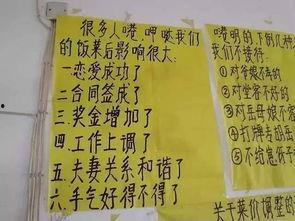 很多人嗒呷哒我们
的饭菜后影响很大:
一恋爱成功了
二合同签成了
三奖金增加了
四.工作上调了
五.夫妻关系和谐了
六.手气好得不得了
喽明的下倒几种
我们不接待:
①对爷娘不孝的
②对堂客不好的
③对岳母娘不
④打牌专胡
⑤不给
关于菜价调整的